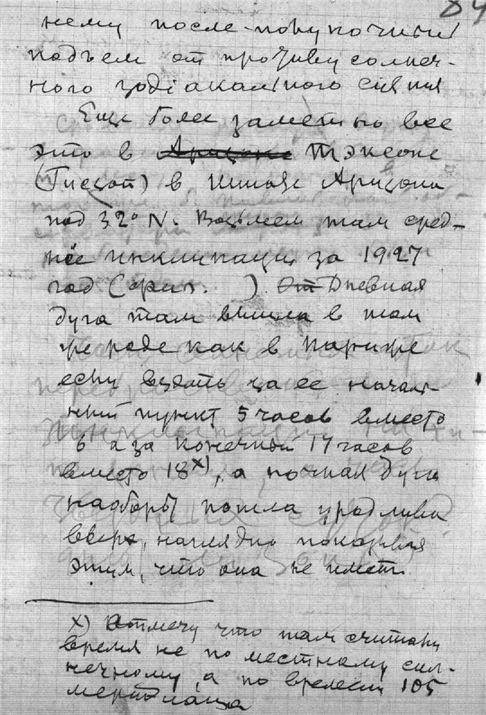 84
нему после-полуночный
подъем от противусолнеч-
ного зодіакального сияния
Еще более заметно все
это в Аризоне Тэксоне
(Тиксоп) в штате Аризона
под 32° N. Возьмем там сред-
нее инклинации за 1927
год (ориг. ) От Дневная
дуга там вышла в том
же роде как в Париже
если взять за ее началь-
ный пункт 5 часов вместо
6 а за конечной 17 часов
вместо 18 x), а ночная дуга
наоборот пошла уродливо
вверх, наглядно показывая
этим, что она не имеет
x) Отмечу что там считают
время не по местному сол-
нечному, а по времени 105
меридиана